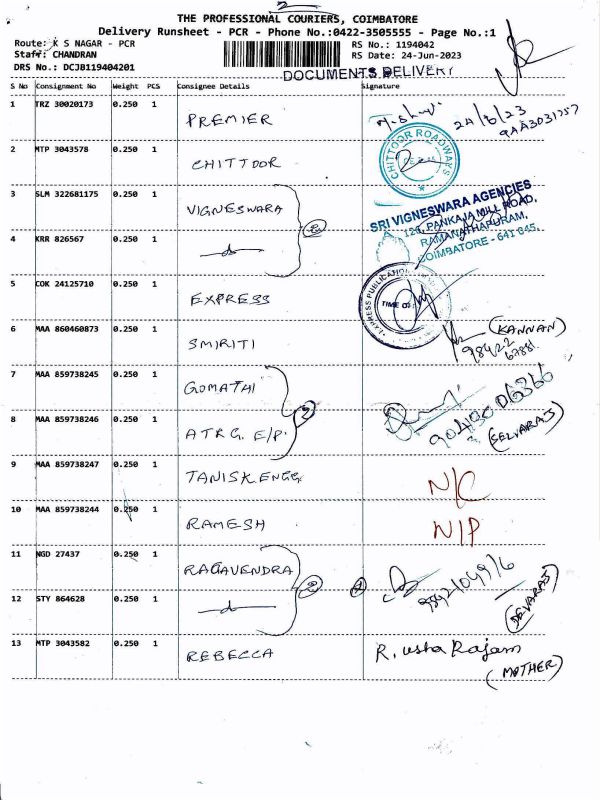 2
THE PROFESSIONAL COURIERS, COIMBATORE
Delivery Runsheet - PCR - Phone No.:0422-3505555 - Page No.:1
Route: K S NAGAR - PCR
RS No.: 1194042
Staff: CHANDRAN
RS Date: 24-Jun-2023
DRS No.: DCJB119404201
DOCUMENTS DELIVERY
S No Consignment No Weight PCS Consignee Details Signature
1 TRZ 30020173 0.250 1 PREMIER
24/6/23
9AA3031757
2 MTP 3043578 0.250 1 CHITTOOR
CHITTOOR ROADWAYS
3 SLM 322681175 0.250 1 VIGNESWARA
SRI VIGNESWARA AGENCIES
126, PANKAJA MILL ROAD,
RAMANATHAPURAM,
COIMBATORE - 641 045.
2
4 KRR 826567 0.250 1 —do—
5 COK 24125710 0.250 1 EXPRESS
EXPRESS PUBLICATION
TIME OF
6 MAA 860460873 0.250 1 SMIRITI
(KANNAN)
98422
67881
7 MAA 859738245 0.250 1 GOMATHI
2
8 MAA 859738246 0.250 1 ATRG. E/P.
90430 06366
(SELVARAJ)
9 MAA 859738247 0.250 1 TANISK ENGG
N/C
10 MAA 859738244 0.250 1 RAMESH
N/P
11 NGD 27437 0.250 1 RAGAVENDRA
2
9842104916
(DEVARAJ)
12 STY 864628 0.250 1 —do—
13 MTP 3043582 0.250 1 REBECCA
R. Usha Rajam
(MOTHER)